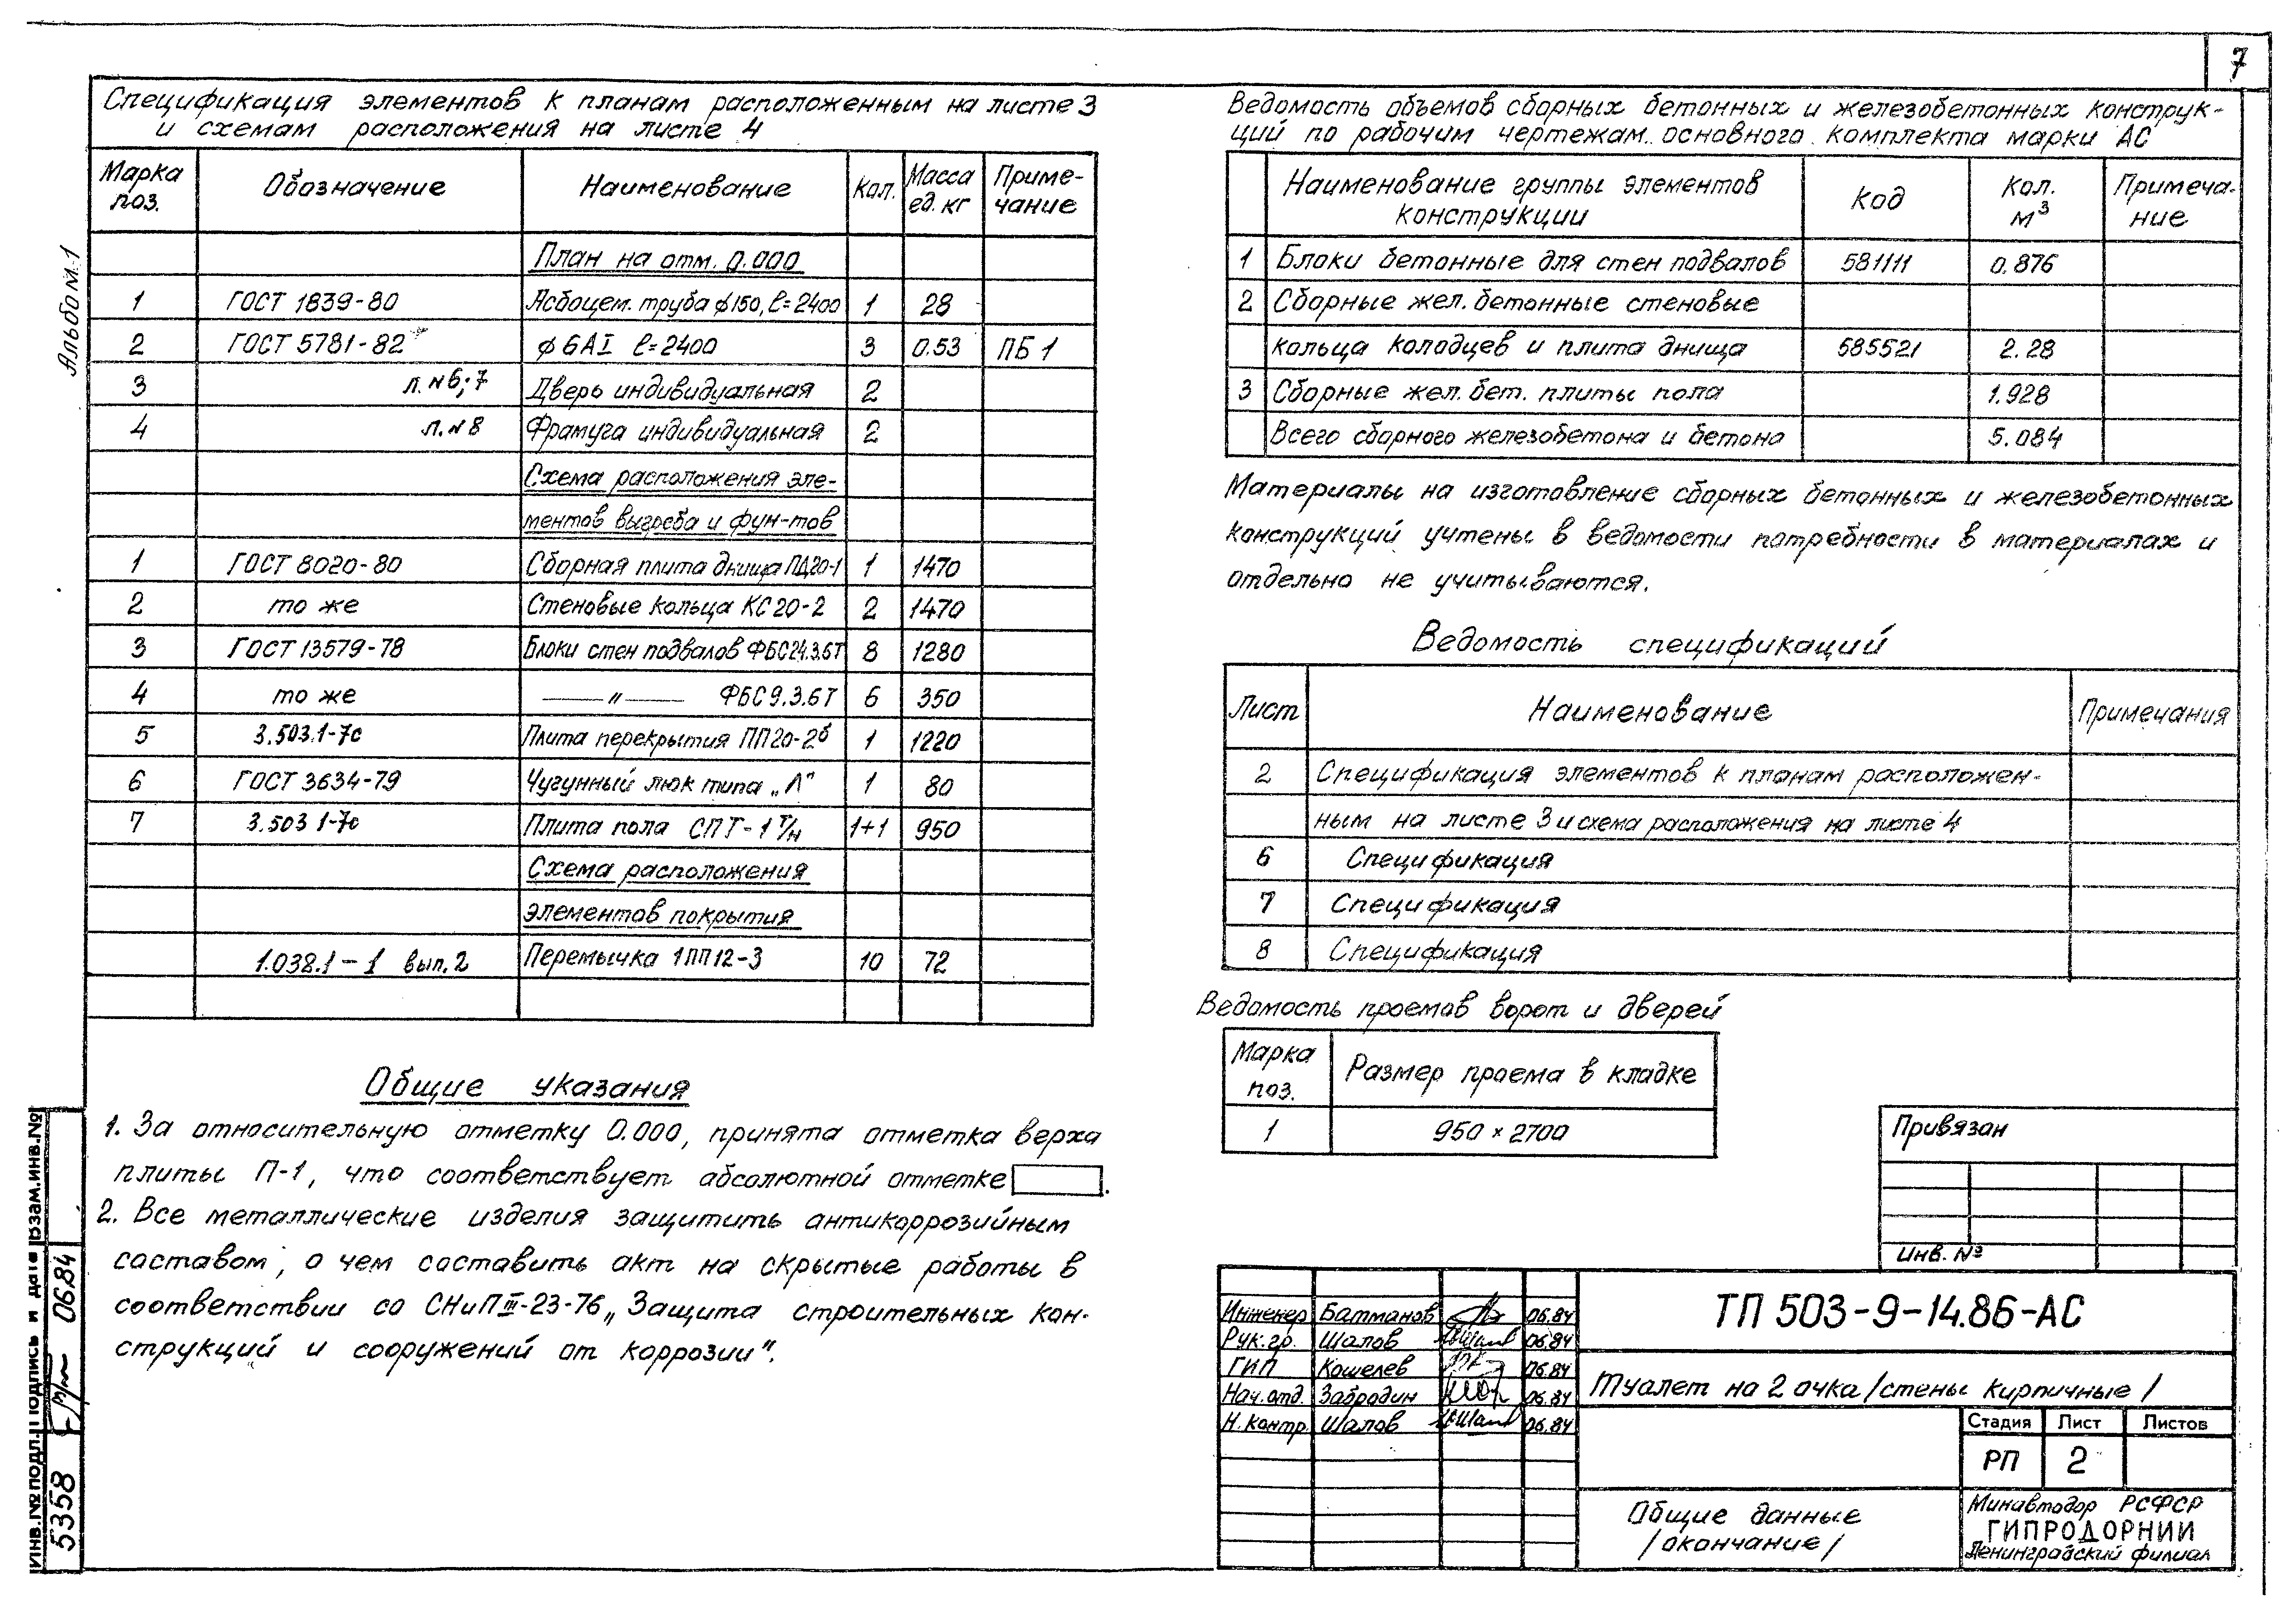 7
Альбом 1
Спецификация элементов к планам расположенным на листе 3
и схемам расположения на листе 4
Марка поз. Обозначение Наименование Кол. Масса ед. кг Приме-чание
План на отм. 0.000
1 ГОСТ 1839-80 Асбоцем. труба ф150, ℓ=2400 1 28
2 ГОСТ 5781-82 ф 6АI ℓ=2400 3 0.53 ПБ 1
3 л. №6; 7 Дверь индивидуальная 2
4 л. №8 Фрамуга индивидуальная 2
Схема расположения эле-
ментов выгреба и фун-тов
1 ГОСТ 8020-80 Сборная плита днища ПД20-1 1 1470
2 то же Стеновые кольца КС 20-2 2 1470
3 ГОСТ 13579-78 Блоки стен подвалов ФБС24.3.6Т 8 1280
4 то же —— " —— ФБС9.3.6Т 6 350
5 3.503.1-7с Плита перекрытия ПП20-2б 1 1220
6 ГОСТ 3634-79 Чугунный люк типа „Л" 1 80
7 3.503 1-7с Плита пола СПТ-1 т/н 1+1 950
Схема расположения
элементов покрытия
1.038.1-1 вып. 2 Перемычка 1ПП12-3 10 72
Общие указания
1. За относительную отметку 0.000, принята отметка верха
плиты П-1, что соответствует абсолютной отметке .
2. Все металлические изделия защитить антикоррозийным
составом, о чем составить акт на скрытые работы в
соответствии со СНиП III-23-76 „Защита строительных кон-
струкций и сооружений от коррозии".
Ведомость объемов сборных бетонных и железобетонных конструк-
ций по рабочим чертежам основного комплекта марки АС
Наименование группы элементов конструкции Код Кол. м³ Примеча-ние
1 Блоки бетонные для стен подвалов 581111 0.876
2 Сборные жел. бетонные стеновые
кольца колодцев и плита днища 585521 2.28
3 Сборные жел. бет. плиты пола 1.928
Всего сборного железобетона и бетона 5.084
Материалы на изготовление сборных бетонных и железобетонных
конструкций учтены в ведомости потребности в материалах и
отдельно не учитываются.
Ведомость спецификаций
Лист Наименование Примечания
2 Спецификация элементов к планам расположен-
ным на листе 3 и схема расположения на листе 4
6 Спецификация
7 Спецификация
8 Спецификация
Ведомость проемов ворот и дверей
Марка поз. Размер проема в кладке
1 950 × 2700
Привязан
Инв. №
Инженер Батманов 06.84
Рук. гр. Шалов 06.84
ГИП Кошелев 06.84
Нач. отд. Забродин 06.84
Н. контр. Шалов 06.84
ТП 503-9-14.86-АС
Туалет на 2 очка /стены кирпичные/
Стадия Лист Листов
РП 2
Общие данные
/окончание/
Минавтодор РСФСР
ГИПРОДОРНИИ
Ленинградский филиал
Инв. № подл. Подпись и дата Взам. инв. №
5358 06.84